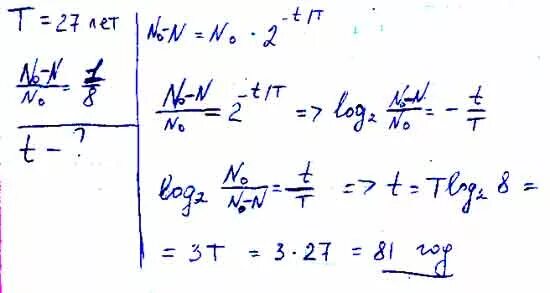 T = 27 лет
N₀-N / N₀ = 1/8
t - ?
N₀-N = N₀ · 2^(-t/T)
N₀-N / N₀ = 2^(-t/T) => log₂ N₀-N / N₀ = - t/T
log₂ N₀ / N₀-N = t/T => t = T log₂ 8 =
= 3T = 3 · 27 = 81 год